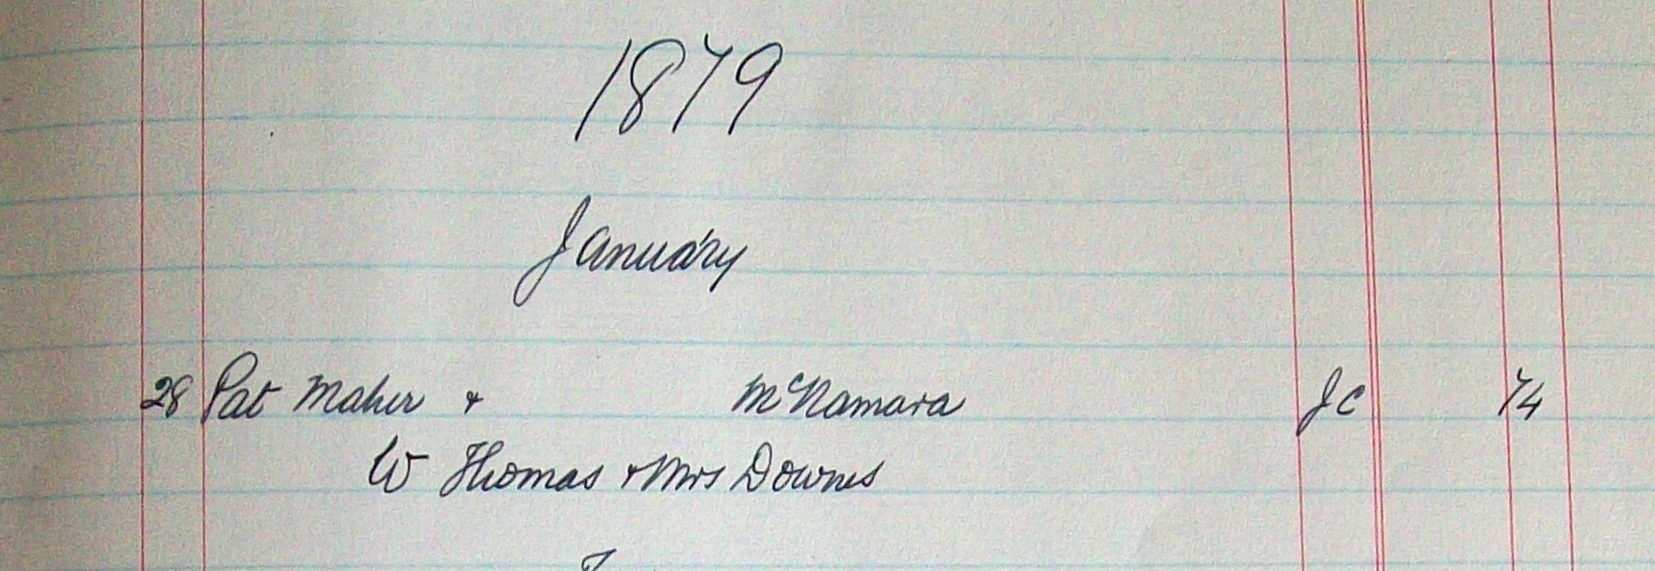 1879
January
28 Pat Maher + McNamara JC 74
W Thomas + Mrs Downes